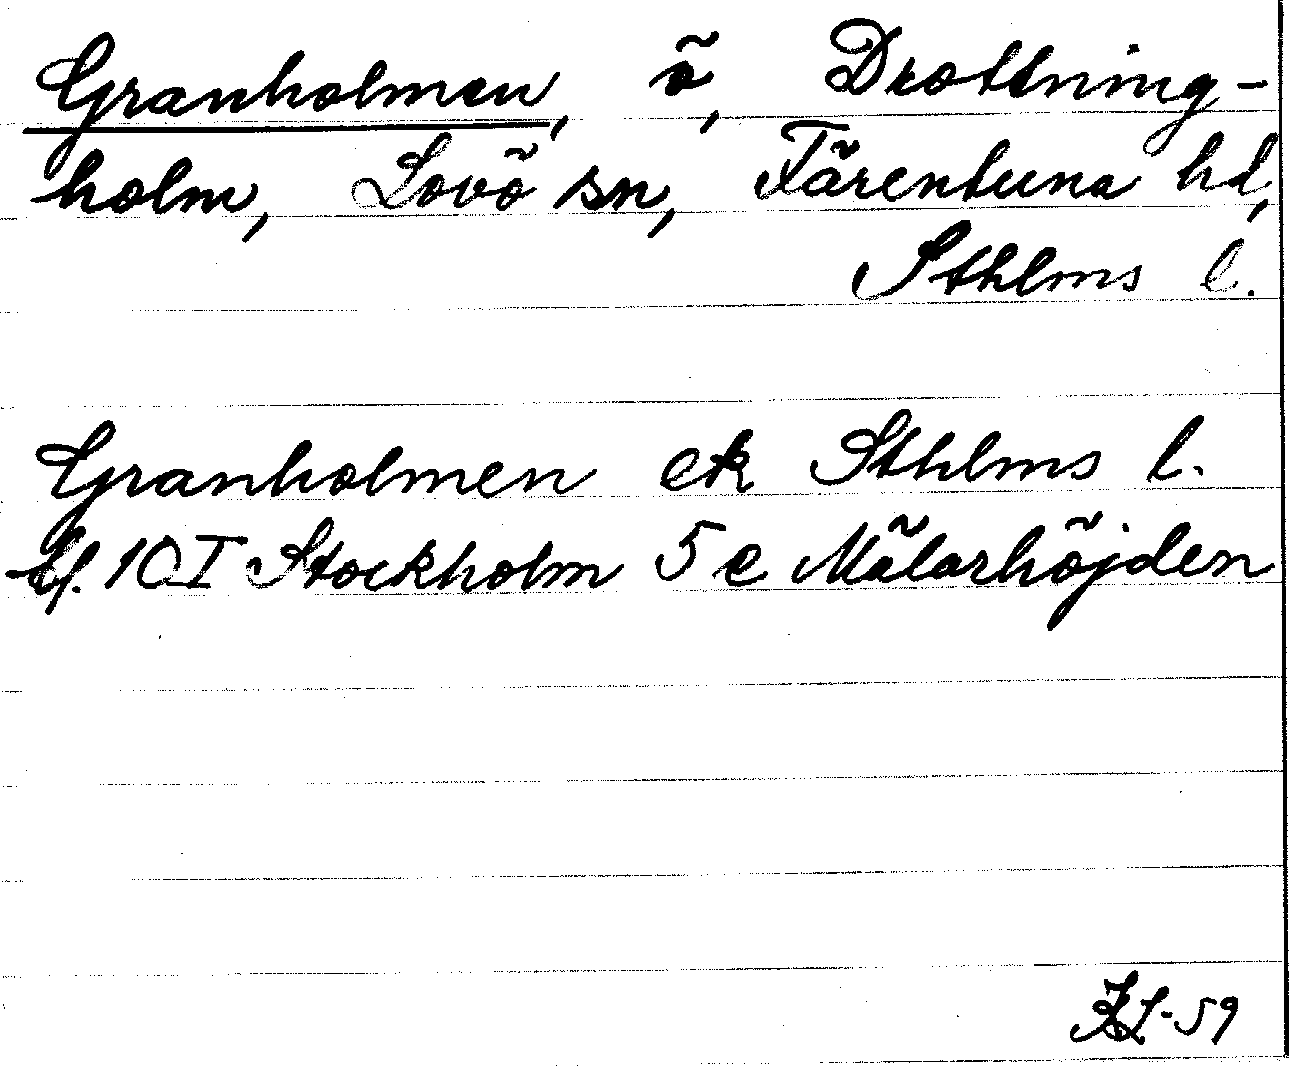 Granholmen, ö, Drottning-
holm, Lovö sn, Färentuna hd,
Sthlms l.
Granholmen ek Sthlms l.
bl. 10 I Stockholm 5 e Mälarhöjden
-59